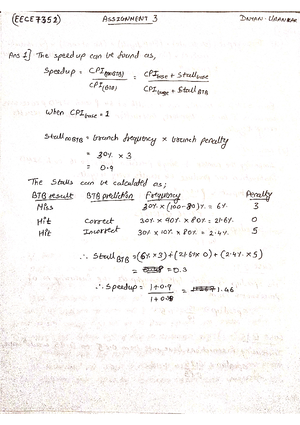 (EECE7352) ASSIGNMENT 3 DHYAN-URANKAR
Ans 1] The speedup can be found as,
Speedup = CPI(NOBTB) / CPI(BTB) = CPIbase + Stallbase / CPIbase + Stall BTB
When CPIbase = 1
StallNOBTB = branch frequency × branch penalty
= 30% × 3
= 0.9
The Stalls can be calculated as;
BTB result BTB prediction Frequency Penalty
Miss 30% × (100-80)% = 6% 3
Hit Correct 30% × 90% × 80% = 21.6% 0
Hit Incorrect 30% × 10% × 80% = 2.4% 5
∴ Stall BTB = (6% × 3) + (21.6% × 0) + (2.4% × 5)
= 0.3
∴ Speedup = 1+0.9 / 1+0.3 = 1.46